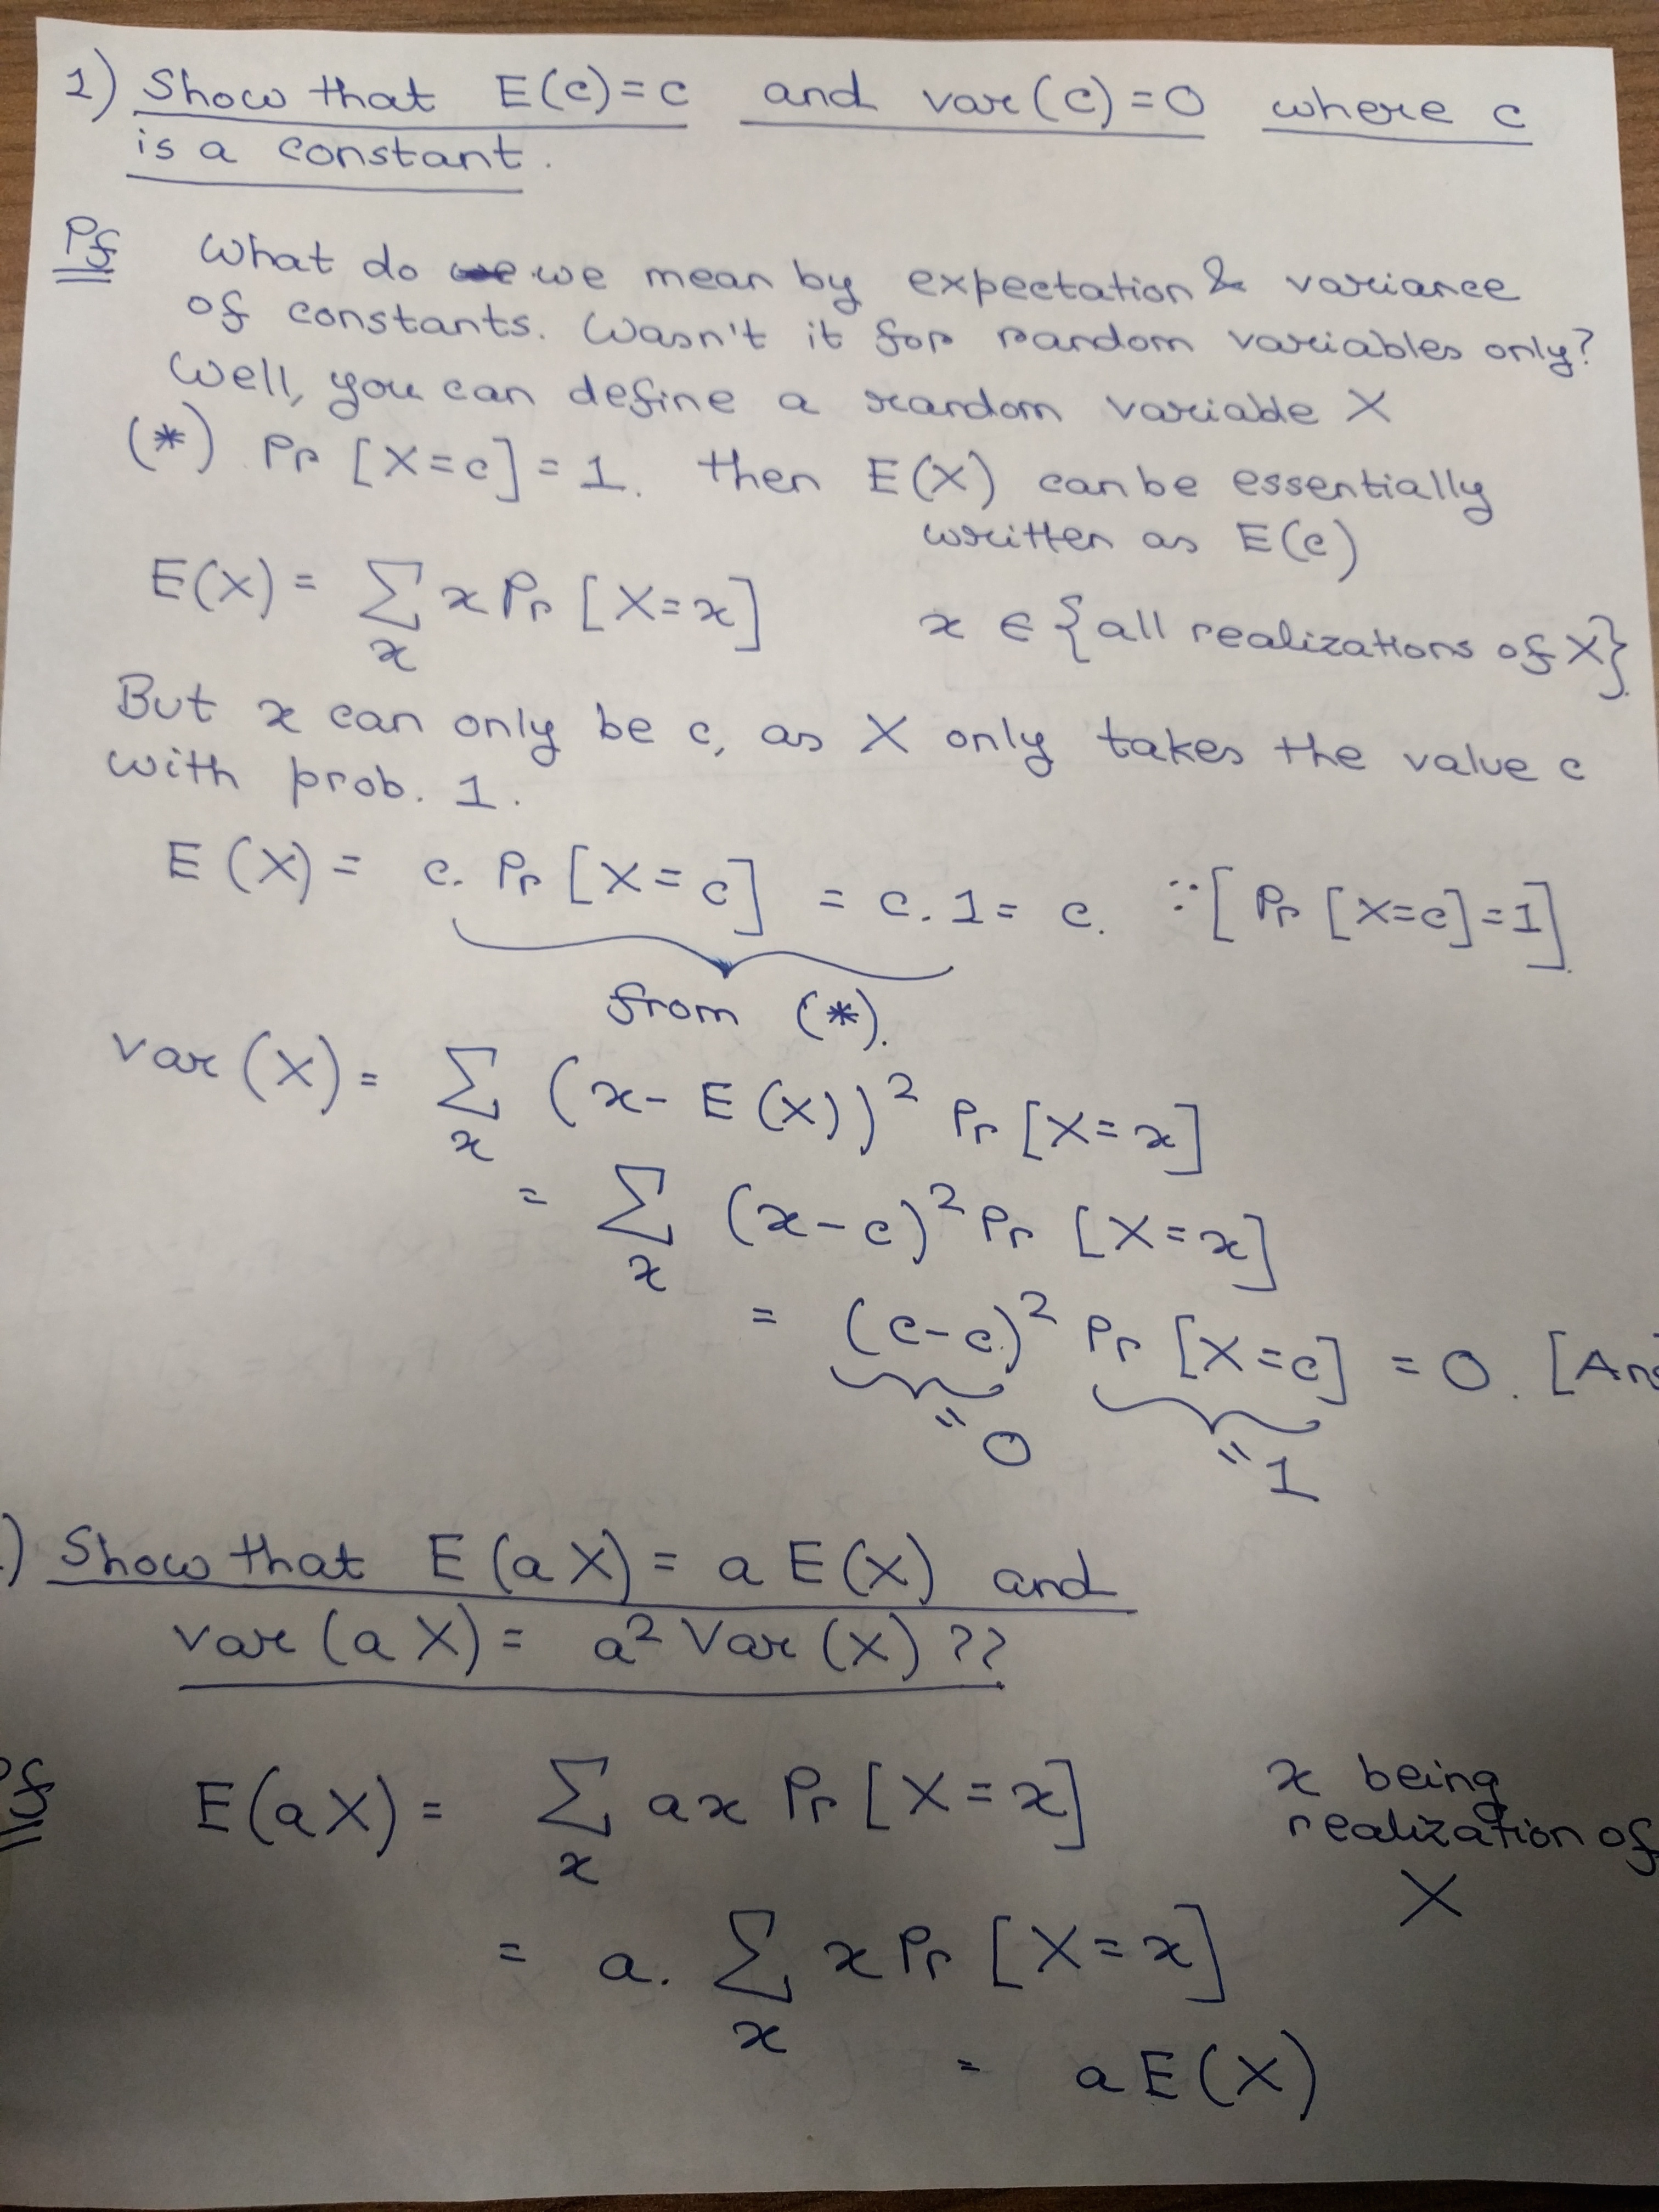 1) Show that E(c)=c and var(c)=0 where c
is a constant.
Pf What do we we mean by expectation & variance
of constants. Wasn't it for random variables only?
Well, you can define a random variable X
(*) Pr [X=c]=1. then E(X) can be essentially
written as E(c)
E(X) = ∑ x Pr [X=x] x ∈ {all realizations of X}.
x
But x can only be c, as X only takes the value c
with prob. 1.
E(X) = c. Pr [X=c] = c.1= c. ∵[Pr [X=c]=1].
from (*).
var(X) = ∑ (x- E(X))² Pr [X=x]
x
= ∑ (x-c)² Pr [X=x]
x
= (c-c)² Pr [X=c] = 0. [An
= 0 = 1
) Show that E(aX) = a E(X) and
var(aX) = a² Var(X)??
Pf E(aX) = ∑ ax Pr [X=x] x being
x realization of
X
= a. ∑ x Pr [X=x]
x
= a E(X)